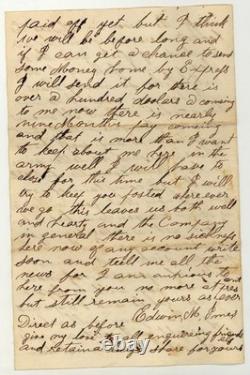 paid off yet but I think
we will be before long and
if I can get a chance to send
some Money home by Express
I will send it for there is
over a hundred dollars a coming
to me now there is nearly
nine Months pay coming
and that is more than I want
to keep about me here in the
army well I will have to
close for this time but I will
try to keep you posted where ever
we go this leaves us both well
and heart and the Company
in general there is no sickness
here now of any account write
soon and tell me all the
news for I am anxious and to
here from you no more at pres
but still remain yours as ever
Edwin
Direct as before
give my love to all enquireing friends
and retain a large share for yours